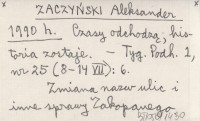 ZACZYŃSKI Aleksander
1990 h. Czasy odchodzą, his-
toria zostaje. – Tyg. Podh. 1,
nr 25 (8–14 VII): 6.
Zmiana nazw ulic i
inne sprawy Zakopanego